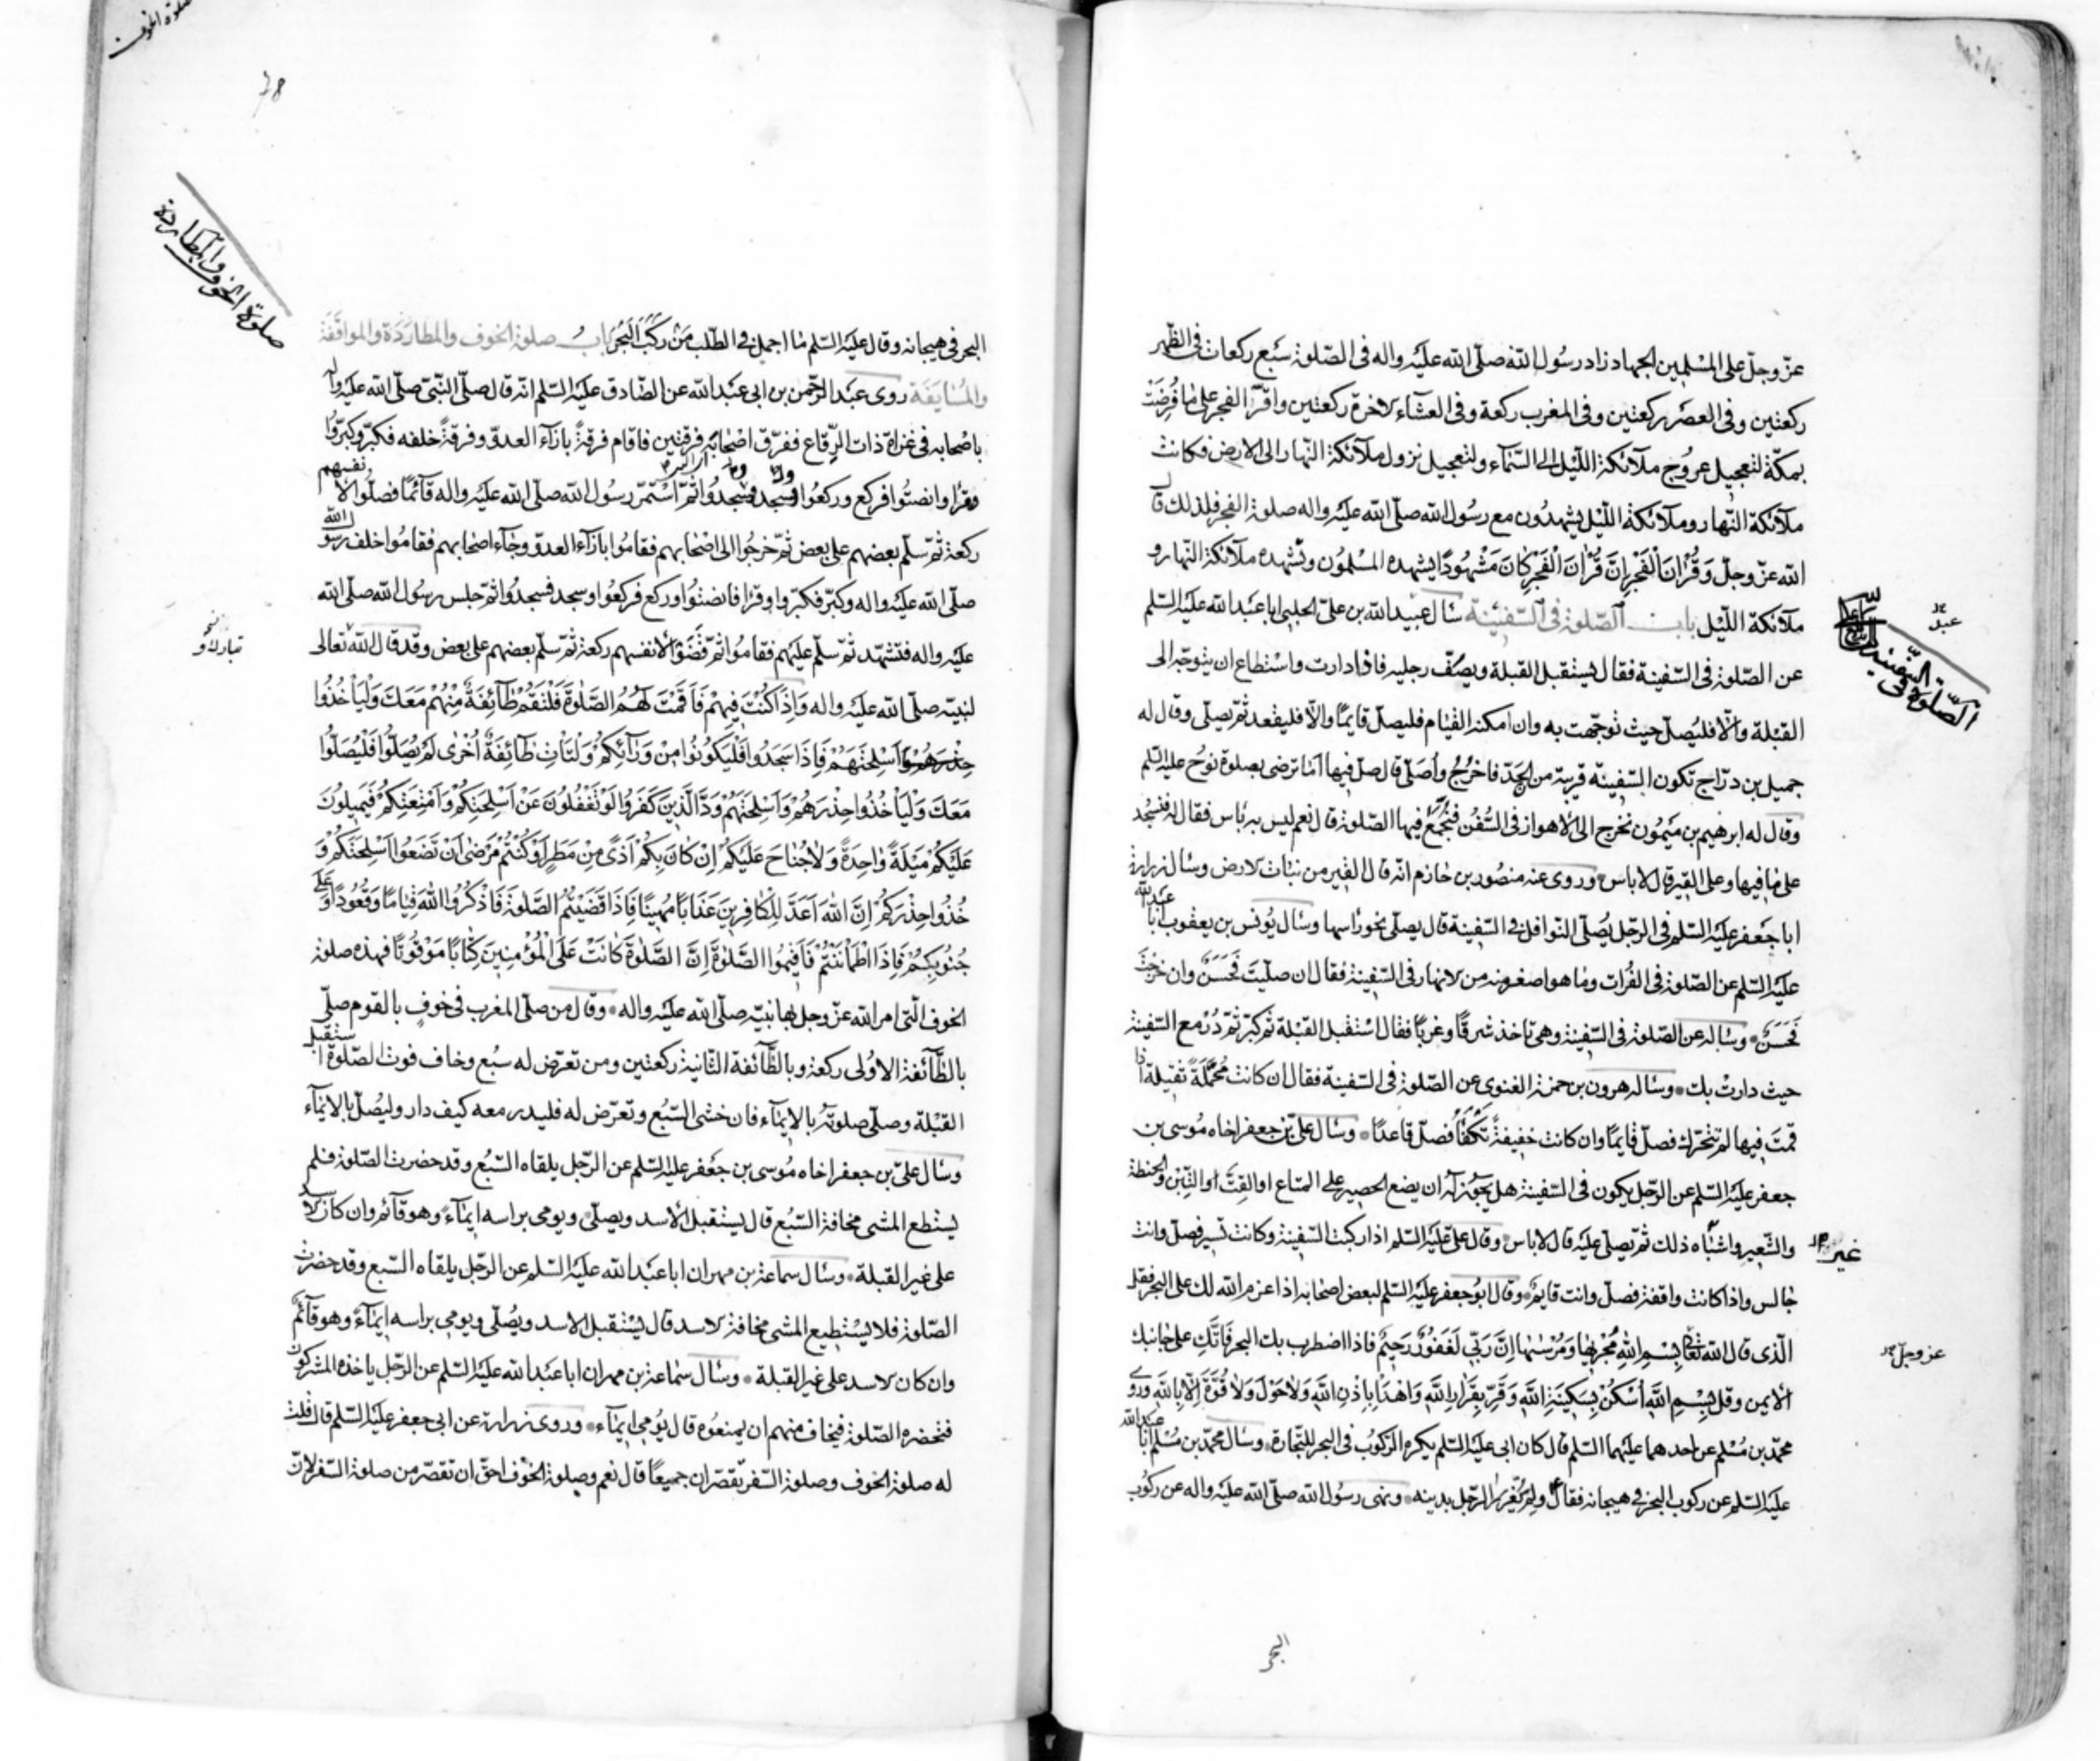 عزّ وجلّ على المسلمين الجهاد زاد رسول الله صلّى الله عليه واله فى الصّلوة سبع ركعات فى الظّهر
ركعتين وفى العصر ركعتين وفى المغرب ركعة وفى العشاء الاخرة ركعتين واقرّ الفجر على ما فرضت
بمكّة لتعجيل عروج ملآئكة اللّيل الى السّمآء ولتعجيل نزول ملآئكة النّهار الى الارض فكانت
ملآئكة النّهار وملآئكة اللّيل يشهدون مع رسول الله صلّى الله عليه واله صلوة الفجر فلذلك قال
الله عزّ وجلّ وَقُرْانَ الْفَجْرِ اِنَّ قُرْانَ الْفَجْرِ كَانَ مَشْهُودًا يشهده المسلمون وتشهده ملآئكة النّهار و
ملآئكة اللّيل باب الصّلوة فى السّفينة سأل عبيد الله بن علىّ الحلبى ابا عبد الله عليه السّلم
عن الصّلوة فى السّفينة فقال يستقبل القبلة ويصفّ رجليه فاذا دارت واستطاع ان يتوجّه الى
القبلة والّا فليصلّ حيث توجّهت به وان امكنه القيام فليصلّ قايمًا والّا فليقعد ثمّ يصلّى وقال له
جميل بن درّاج تكون السّفينة قريبة من الجدّ فاخرج واصلّى قال صلّ فيها اما ترضى بصلوة نوح عليه السّلم
وقال له ابرهيم بن ميمون نخرج الى الاهواز فى السّفن فنجمّع فيها الصّلوة قال نعم ليس به باس فقال له فنسجد
على ما فيها وعلى القير قال لا باس وروى عنه منصور بن حازم انّه قال القير من نبات الارض وسأل زرارة
ابا جعفر عليه السّلم فى الرّجل يصلّى النّوافل فى السّفينة قال يصلّى نحو راسها وسأل يونس بن يعقوب ابا عبد الله
عليه السّلم عن الصّلوة فى الفرات وما هو اصغر منه من الانهار فى السّفينة فقال ان صلّيت فحسن وان خرجت
فحسن وساله عن الصّلوة فى السّفينة وهى تاخذ شرقًا وغربًا فقال استقبل القبلة ثم كبّر ثمّ دُر مع السّفينة
حيث دارت بك وساله هرون بن حمزة الغنوى عن الصّلوة فى السّفينة فقال ان كانت محمّلة ثقيلة اذا
قمت فيها لم تتحرّك فصلّ قايمًا وان كانت خفيفة تكفّأ فصلّ قاعدًا وسأل علىّ بن جعفر اخاه موسى بن
جعفر عليه السّلم عن الرّجل يكون فى السّفينة هل يجوز له ان يضع الحصير على المتاع او القتّ او التّبن والحنطة
والشّعير واشباه ذلك ثمّ يصلّى عليه قال لا باس وقال علىّ عليه السّلم اذا ركبت السّفينة وكانت تسير فصلّ وانت
جالس واذا كانت واقفة فصلّ وانت قايم وقال ابو جعفر عليه السّلم لبعض اصحابه اذا عزم الله لك على البحر فقل
الّذى قال الله تعالى بِسْمِ اللهِ مَجْرٰيهَا وَمُرْسٰيهَا اِنَّ رَبِّى لَغَفُورٌ رَحِيمٌ فاذا اضطرب بك البحر فاتّك على جانبك
الايمن وقل بِسْمِ اللهِ اُسْكُنْ بِسَكِينَةِ اللهِ وَقِرِّ بِقَرَارِ اللهِ وَاهْدَأْ بِاِذْنِ اللهِ وَلَا حَوْلَ وَلَا قُوَّةَ اِلَّا بِاللهِ وروى
محمّد بن مسلم عن احدهما عليهما السّلم قال كان ابى عليه السّلم يكره الرّكوب فى البحر للتّجارة وسأل محمّد بن مسلم ابا عبد الله
عليه السّلم عن ركوب البحر فى هيجانه فقال ولم يغرّر الرّجل بدينه ونهى رسول الله صلّى الله عليه واله عن ركوب
البحر
عبد
الصّلوة فى السّفينة
غير
عزوجلّ
البحر فى هيجانه وقال عليه السّلم ما اجمل فى الطّلب من ركب البحر باب صلوة الخوف والمطاردة والمواقفة
والمسايفة روى عبد الرّحمن بن ابى عبد الله عن الصّادق عليه السّلم انّه قال صلّى النّبىّ صلّى الله عليه واله
باصحابه فى غزاة ذات الرّقاع ففرّق اصحابه فرقتين فاقام فرقة بازآء العدوّ وفرقة خلفه فكبّر وكبّروا
وقرا وانصتوا فركع وركعوا وسجد وسجدوا ثمّ استمرّ رسول الله صلّى الله عليه واله قآئمًا فصلّوا لانفسهم
ركعة ثمّ سلّم بعضهم على بعض ثمّ خرجوا الى اصحابهم فقاموا بازآء العدوّ وجآء اصحابهم فقاموا خلف رسول الله
صلّى الله عليه واله وكبّر فكبّروا وقرا فانصتوا وركع فركعوا وسجد فسجدوا ثمّ جلس رسول الله صلّى الله
عليه واله فتشهّد ثمّ سلّم عليهم فقاموا ثمّ قضوا لانفسهم ركعة ثمّ سلّم بعضهم على بعض وقد قال الله تعالى
لنبيّه صلّى الله عليه واله وَاِذَا كُنْتَ فِيهِمْ فَاَقَمْتَ لَهُمُ الصَّلٰوةَ فَلْتَقُمْ طَآئِفَةٌ مِنْهُمْ مَعَكَ وَلْيَاْخُذُوا
اَسْلِحَتَهُمْ فَاِذَا سَجَدُوا فَلْيَكُونُوا مِنْ وَرَآئِكُمْ وَلْتَاْتِ طَآئِفَةٌ اُخْرٰى لَمْ يُصَلُّوا فَلْيُصَلُّوا
مَعَكَ وَلْيَاْخُذُوا حِذْرَهُمْ وَاَسْلِحَتَهُمْ وَدَّ الَّذِينَ كَفَرُوا لَوْ تَغْفُلُونَ عَنْ اَسْلِحَتِكُمْ وَاَمْتِعَتِكُمْ فَيَمِيلُونَ
عَلَيْكُمْ مَيْلَةً وَاحِدَةً وَلَا جُنَاحَ عَلَيْكُمْ اِنْ كَانَ بِكُمْ اَذًى مِنْ مَطَرٍ اَوْ كُنْتُمْ مَرْضٰى اَنْ تَضَعُوا اَسْلِحَتَكُمْ وَ
خُذُوا حِذْرَكُمْ اِنَّ اللهَ اَعَدَّ لِلْكَافِرِينَ عَذَابًا مُهِينًا فَاِذَا قَضَيْتُمُ الصَّلٰوةَ فَاذْكُرُوا اللهَ قِيَامًا وَقُعُودًا وَعَلٰى
جُنُوبِكُمْ فَاِذَا اطْمَاْنَنْتُمْ فَاَقِيمُوا الصَّلٰوةَ اِنَّ الصَّلٰوةَ كَانَتْ عَلَى الْمُؤْمِنِينَ كِتَابًا مَوْقُوتًا فهذه صلوة
الخوف الّتى امر الله عزّ وجلّ بها نبيّه صلّى الله عليه واله وقال من صلّى المغرب فى خوف بالقوم صلّى
بالطّآئفة الاولى ركعة وبالطّآئفة الثّانية ركعتين ومن تعرّض له سبع وخاف فوت الصّلوة استقبل
القبلة وصلّى صلوته بالايمآء فان خشى السّبع وتعرّض له فليدر معه كيف دار وليصلّ بالايمآء
وسأل علىّ بن جعفر اخاه موسى بن جعفر عليه السّلم عن الرّجل يلقاه السّبع وقد حضرت الصّلوة فلم
يستطع المشى مخافة السّبع قال يستقبل الاسد ويصلّى ويومى براسه ايمآء وهو قآئم وان كان الاسد
على غير القبلة وسأل سماعة بن مهران ابا عبد الله عليه السّلم عن الرّجل يلقاه السّبع وقد حضرت
الصّلوة فلا يستطيع المشى مخافة الاسد قال يستقبل الاسد ويصلّى ويومى براسه ايمآء وهو قآئم
وان كان الاسد على غير القبلة وسأل سماعة بن مهران ابا عبد الله عليه السّلم عن الرّجل ياخذه المشركون
فتحضره الصّلوة فيخاف منهم ان يمنعوه قال يومى ايمآء وروى زرارة عن ابى جعفر عليه السّلم قال قلت
له صلوة الخوف وصلوة السّفر تقصّران جميعًا قال نعم وصلوة الخوف احقّ ان تقصّر من صلوة السّفر لانّ
صلوة الخوف
صلوة الخوف والمطاردة
تبارك و